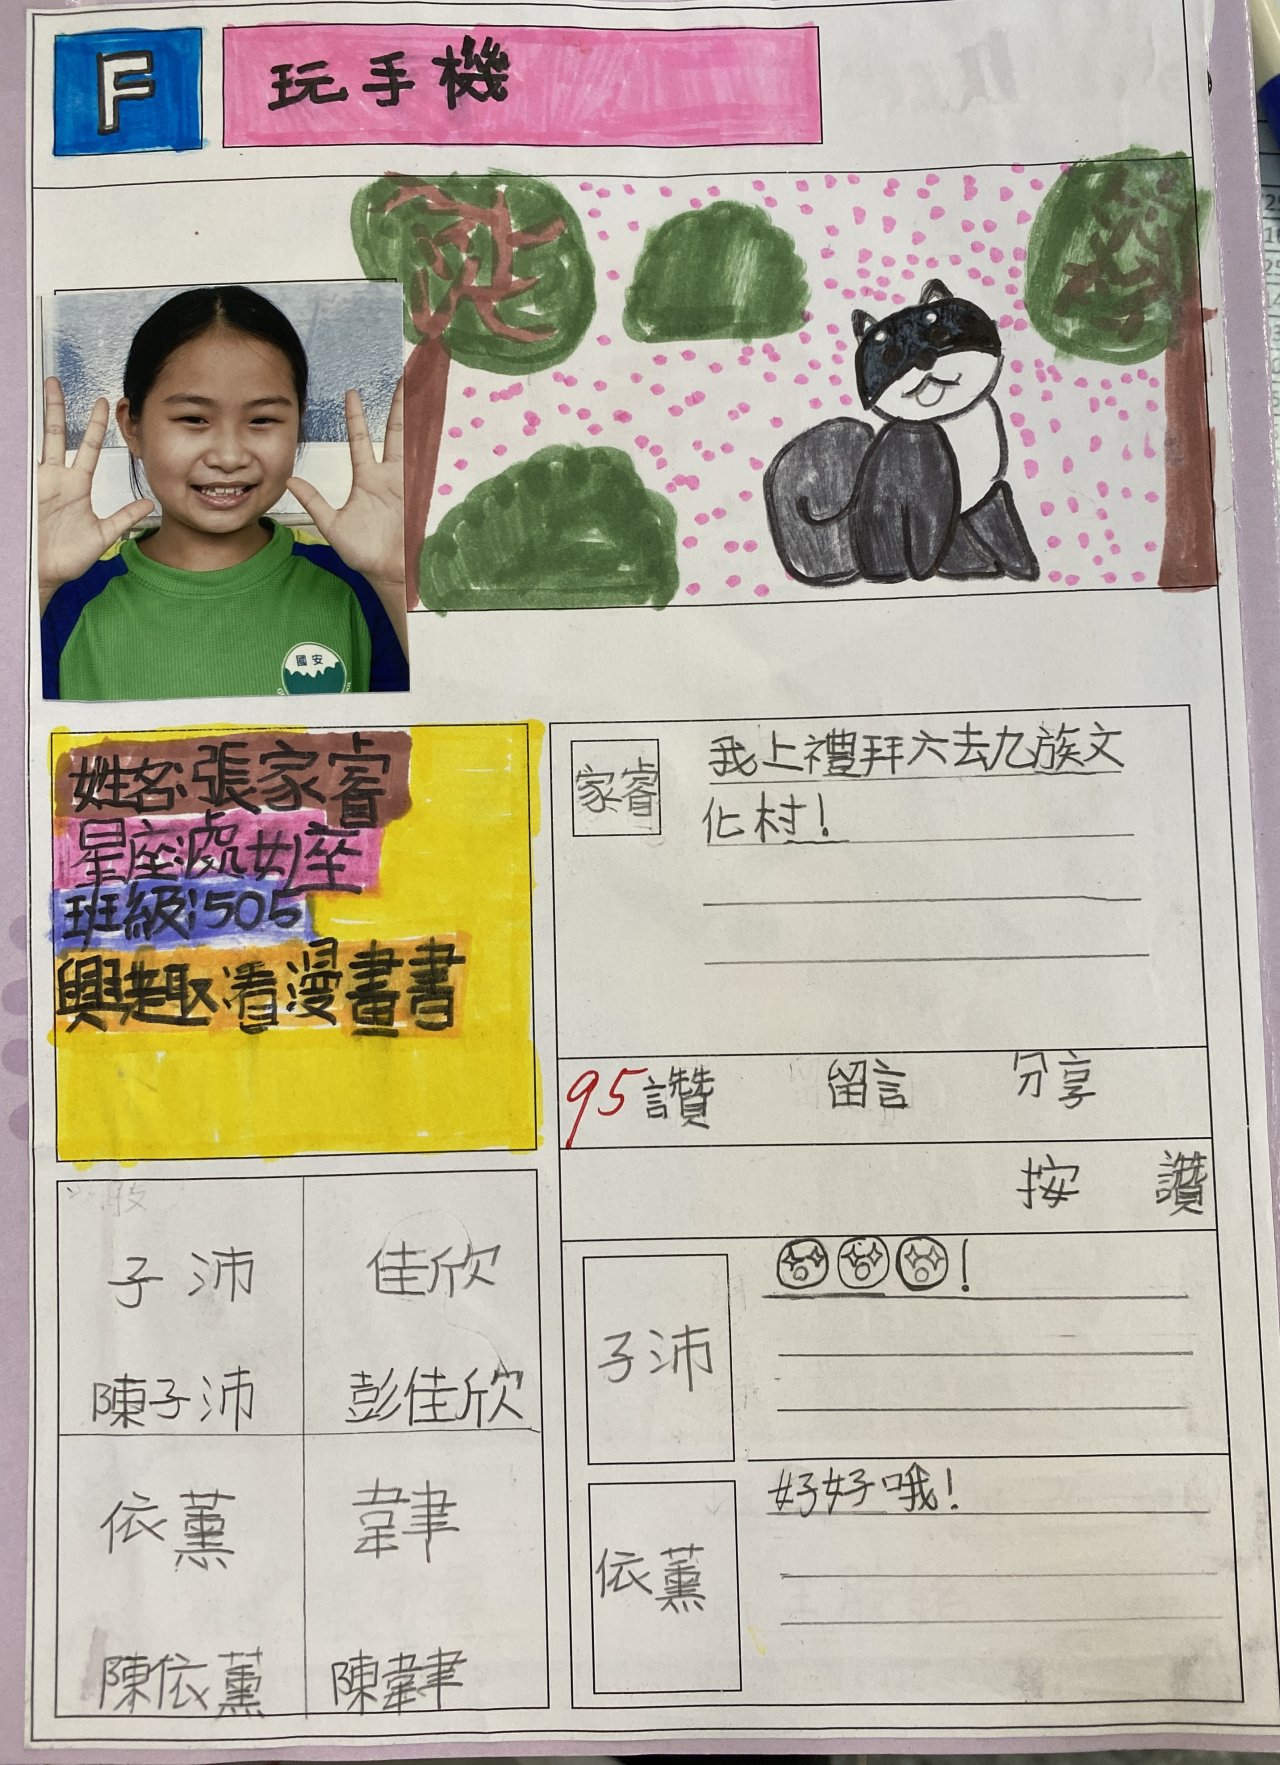 F
玩手機
國安
姓名:張家睿
星座:處女座
班級:505
興趣:看漫畫書
家睿
我上禮拜六去九族文
化村!
95讚 留言 分享
按 讚
子沛
!
依薰
好好哦!
子沛 佳欣
陳子沛 彭佳欣
依薰 韋聿
陳依薰 陳韋聿